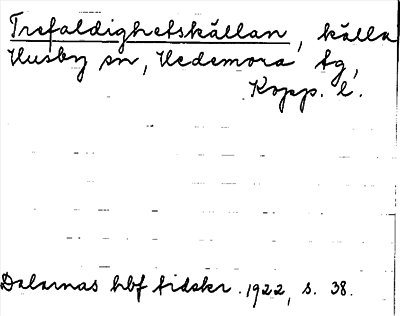 Trefaldighetskällan, källa
Husby sn, Hedemora tg,
Kopp. l.
Dalarnas hbf tidskr. 1922, s. 38.